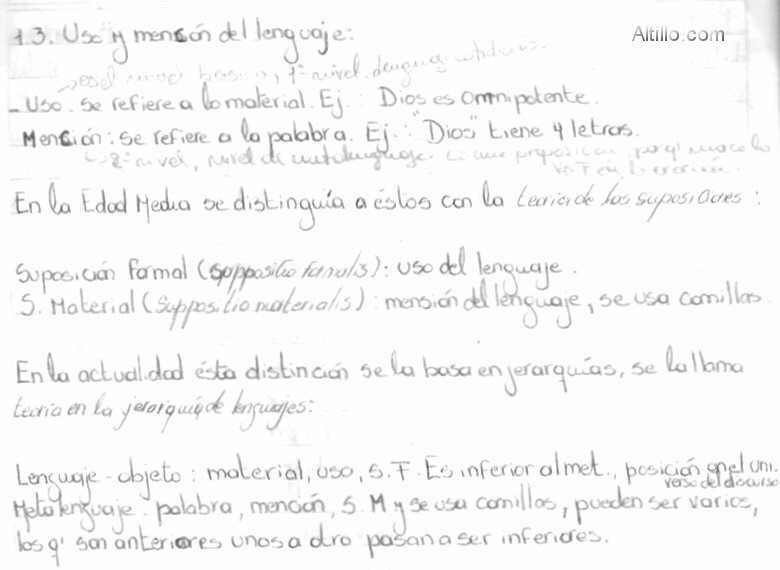 1.3. Uso y mensión del lenguaje:
Altillo.com
→ es el nivel básico, 1º nivel, lenguaje cotidiano.
- Uso. Se refiere a lo material. Ej.: Dios es Omnipotente.
Mención: se refiere a la palabra. Ej.: "Dios" tiene 4 letras.
↳ 2º nivel, nivel de metalenguaje.
En la Edad Media se distinguía a éstos con la teoría de las suposiciones:
Suposición Formal (suppositio formalis): uso del lenguaje.
S. Material (Suppositio materialis): mensión del lenguaje, se usa comillas.
En la actualidad ésta distinción se la basa en jerarquías, se la llama
teoría en la jerarquía de lenguajes:
Lenguaje-objeto: material, uso, S.F. Es inferior al met., posición en el uni-
verso del discurso
Metalenguaje. palabra, mención, S.M y se usa comillas, pueden ser varios,
los q' son anteriores unos a otro pasan a ser inferiores.